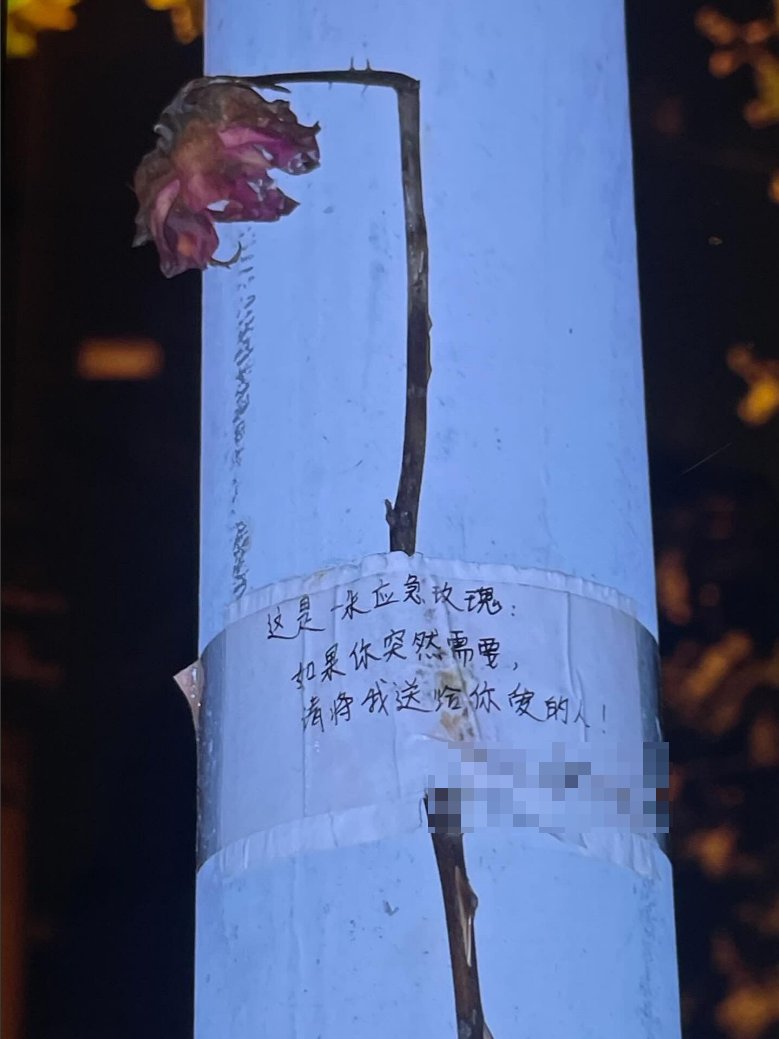 这是一朵应急玫瑰：
如果你突然需要，
请将我送给你爱的人！